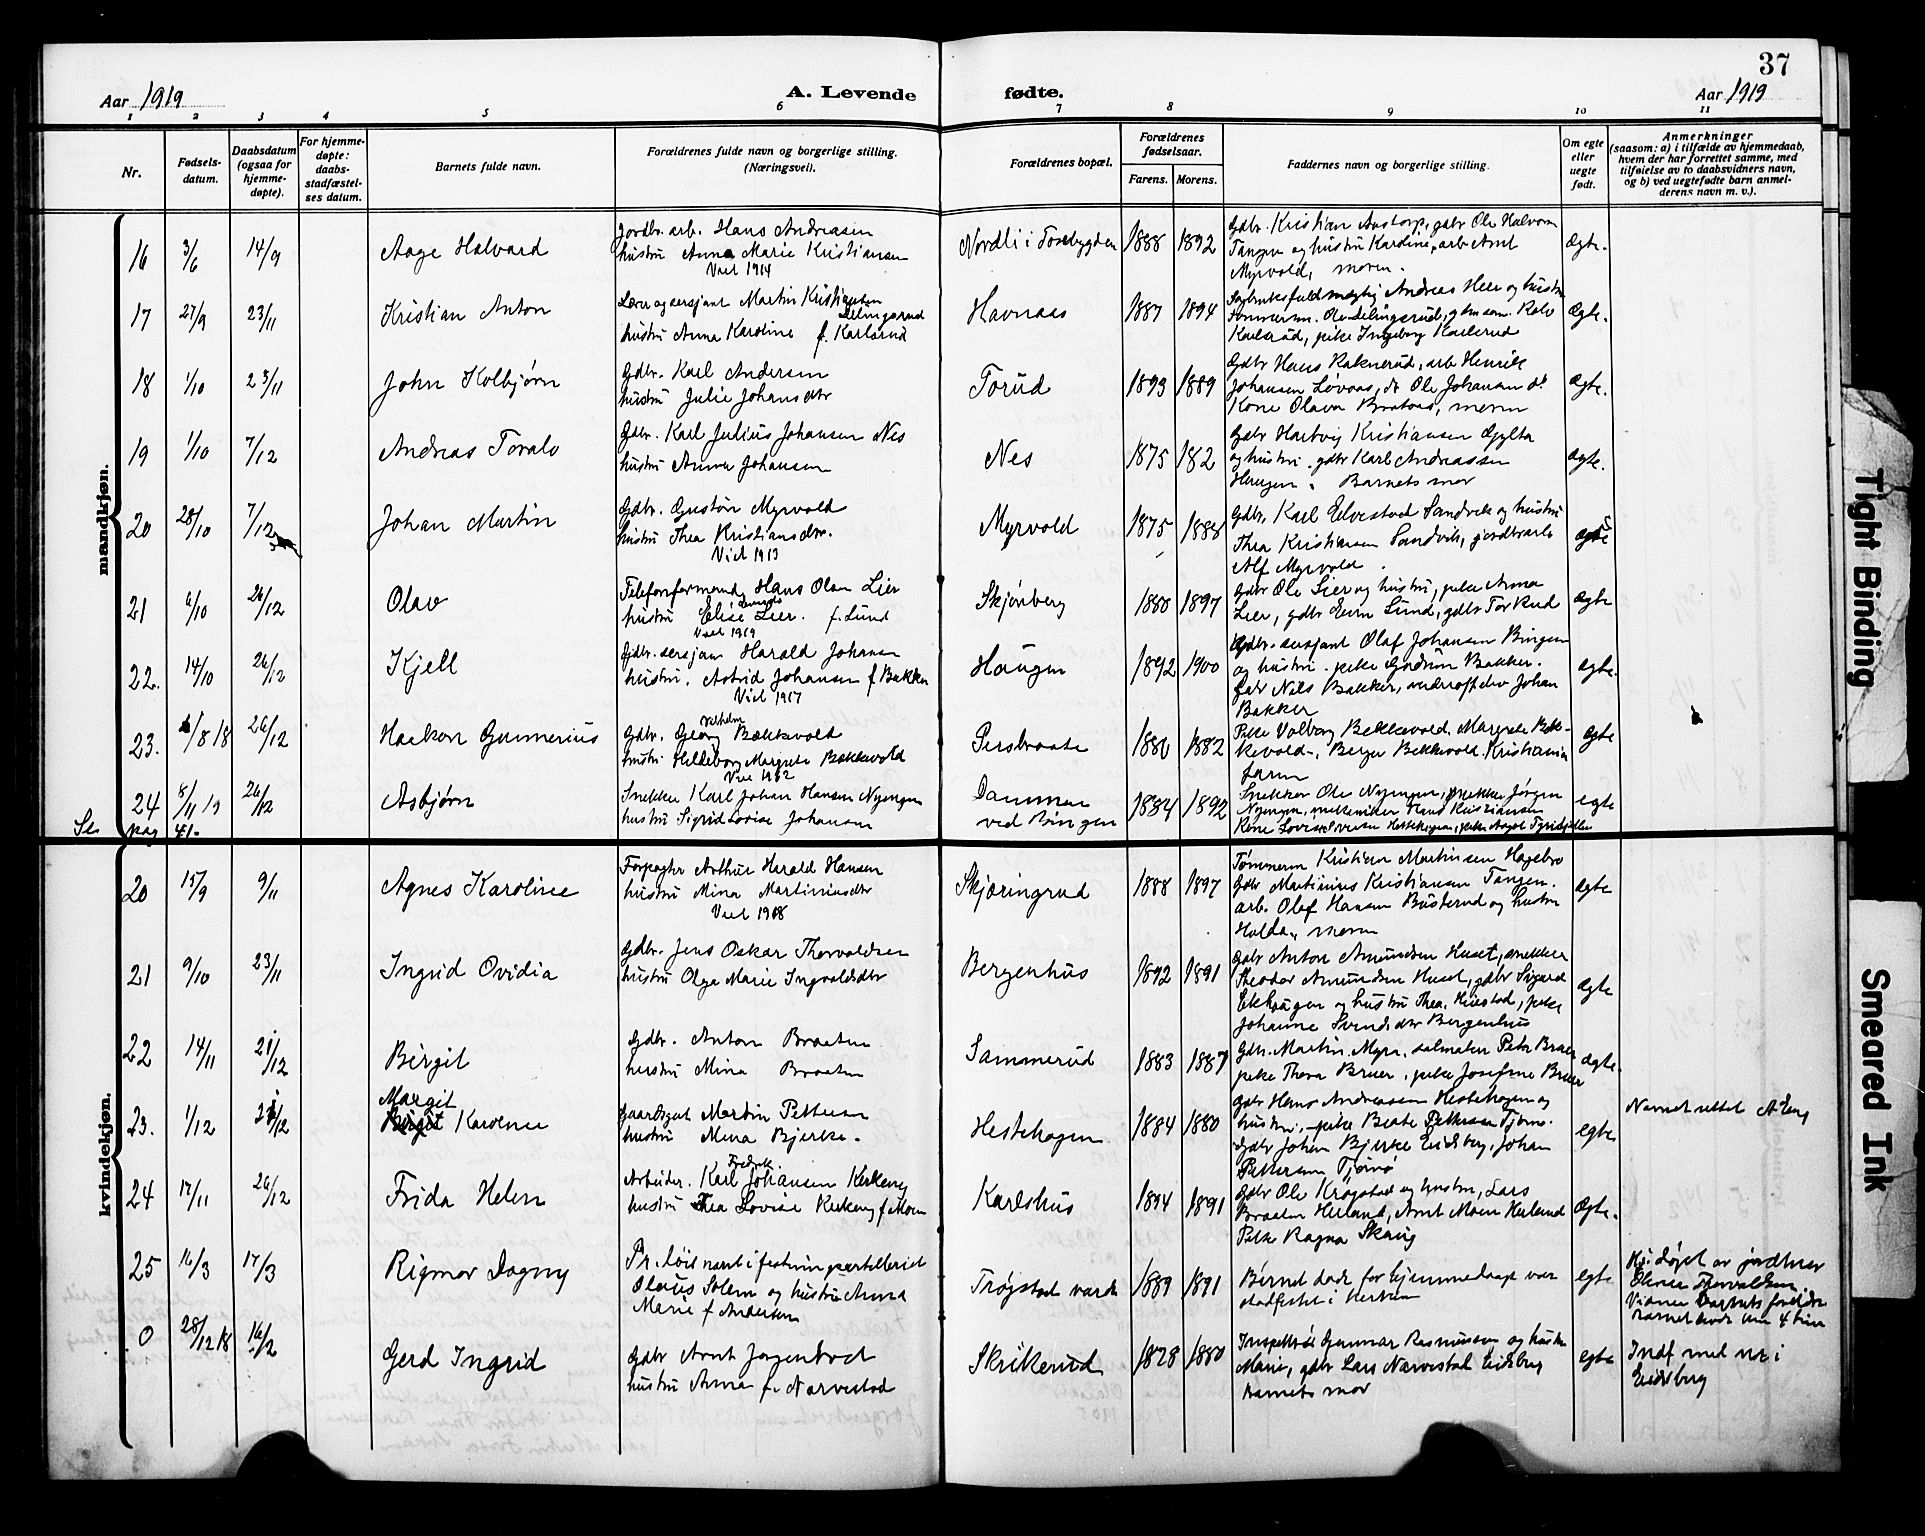 37
Aar 1919
A. Levende fødte.
Aar 1919
1 2 3 4 5 6 7 8 9 10 11
Nr.
Fødsels-
datum.
Daabsdatum
(ogsaa for
hjemme-
døpte).
For hjemme-
døpte:
daabs-
stadfæstel-
ses datum.
Barnets fulde navn.
Forældrenes fulde navn og borgerlige stilling.
(Næringsvei).
Forældrenes bopæl.
Forældrenes
fødselsaar.
Farens. Morens.
Faddernes navn og borgerlige stilling.
Om egte
eller
uegte
født.
Anmerkninger
(saasom: a) i tilfælde av hjemmedaab,
hvem der har forrettet samme, med
tilføielse av to daabsvidners navn,
og b) ved uegtefødte barn anmel-
derens navn m. v.).
mandkjøn.
16 3/6 14/9 Aage Halvard
Jordbr. arb. Hans Andreasen
hustru Anna Marie Kristiansen
Viet 1914
Nordli i Torebygden 1888 1892
Gdbr. Kristian Austorp, gdbr Ole Halvorsen
Tangen og hustru Kardine, arb Arnt
Myrvold, moren.
Ægte.
17 27/9 23/11 Kristian Anton
Lærer og sersjant Martin Kristiansen
Delingsrud
hustru Anna Karoline f. Karlsrud
Havnaas 1887 1894
Andreas Heer og hustru
Ole Delingsrud,
Karlsrud, pike Ingeborg Karlsrud
Ægte.
18 1/10 23/11 John Kolbjørn
Gdbr. Karl Andersen
hustru Julie Johansdtr
Torud 1893 1889
Gdbr Hans Raknerud, arb Henrik
Johansen Løvaas, do Ole Johansen
Kone Olava Braatens, moren
Ægte.
19 1/10 7/12 Andreas Toralv
Gdbr. Karl Julius Johansen Nes
hustru Anna Johansen
Nes 1875 182
Gdbr Hartvig Kristiansen
og hustru. gdbr Karl Andreassen
Haugen. Barnets mor
Ægte.
20 28/10 7/12 Johan Martin
Gdbr. Gustav Myrvold
hustru Thea Kristiansdtr.
Viet 1913
Myrvold 1875 1888
Gdbr. Karl Edvestad Sandvik og hustru
Thea Kristiansen Sandvik, jordbrarb
Alf Myrvold.
ægte
21 9/10 26/12 Olav
Telefonformand Hans Olan Lier
hustru Elise Lier. f. Lund
Viet 1919
Skjønberg 1888 1897
Gdbr Ole Lier og hustru, pike Anna
Lier, gdbr Even Lund, gdbr Tor Rud
Ægte
22. 14/10 26/12 Kjell
Gdbr. sersjant Harald Johansen
hustru. Astrid Johansen f. Bakken
Viet 1917
Haugen 1892 1900
Gdbr. sersjant Olaf Johansen Bingen
og hustru. pike Gudrun Bakker.
Gdbr Nils Bakker, Johan
Bakker
ægte.
23. 1/8 18 26/12 Haakon Gunnerius
Vilhelm
Gdbr. Georg Bækkevold
hustru Hildeborg Margrete Bækkevold
Viet 1902
Persbraate 1880 1882
Pike Valborg Bekkevold, Margrete Bek-
kevold, Berger Bekkevold, Kristiania
faren
ægte
24 8/11 19 26/12 Asbjørn
Snekker Karl Johan Hansen Nyengen
hustru Sigrid Lovise Johansen
Dammen
ved Bingen 1884 1892
Snekker Ole Nyengen, snekker Jørgen
Nyengen, mekaniker Hans Kristiansen
egte
Se pag 41.
kvindekjøn.
20 15/9 9/11 Agnes Karoline
Forpagter Arthur Harald Hansen
hustru Mina Martiniusdtr
Viet 1918
Skjæringrud 1888 1897
Tømmerm Kristian Martinsen Hagebro
Gdbr Martinius Kristiansen Tangen.
arb. Olaf Hansen Busterud og hustru
Hulda, moren
Ægte
21 9/10 23/11 Ingrid Ovidia
Gdbr. Jens Oskar Thorvaldsen
hustru Olga Marie Ingvaldsdtr
Bergenhus 1892 1891
Gdbr Anton Amundsen Huset, snekker
Theodor Amundsen Huset, gdbr Sigurd
Eikhaugen og hustru Thea, pike
Johanne Svendsdtr Bergenhus
Ægte
22 14/11 21/12 Birgit
Gdbr. Anton Braaten
hustru Mina Braaten
Sammerud 1883 1887
Gdbr. Martin Myra, salmaker Petr Bruer
pike Thora Bruer, pike Josefine Bruer
ægte.
23. 1/12 21/12 Margit
Birgit Karense
Gaardsgut Martin Pettersen
hustru Mina Bjerke.
Hestehagen 1884 1880
Gdbr Hans Andreassen Hestehagen og
hustru, pike Beate Pettersen Tjømø.
Gdbr Johan Bjerke Eidsberg, Johan
Pettersen Tjømø
egte
Navnet rettet
24 17/11 26/12 Frida Helen
Fredrik
Arbeider. Karl Johansen Kirkeng
hustru Thea Lovise Kirkeng f. Moen
Karlshus 1894 1891
Gdbr Ole Krogstad og hustru, Lars
Braaten Herland, Arnt Moen Herland
Pike Ragna Skaug
Ægte.
25 16/3 17/3 Rigmor Dagny
Pr. løitnant i festningsartilleriet
Olaus Solem og hustru Anna
Marie f. Andersen
Trøgstad varde 1889 1891
Barnet døde før hjemmedaapen var
stadfestet i kirken
egte
Hj. døpt av jordmor
Thorvaldsen
Vidner barnets foreldre
0 28/12 18 16/2 Gerd Ingrid
Gdbr Arnt Jørgentvet
hustru Anna f. Narvestad
Skrikerud 1878 1880
Inspektør Gunnar Rasmussen og hustru
Marie, gdbr Lars Narvestad Eidsberg
Barnets mor
egte
Indf med nr i
Eidsberg
Tight Binding
Smeared Ink